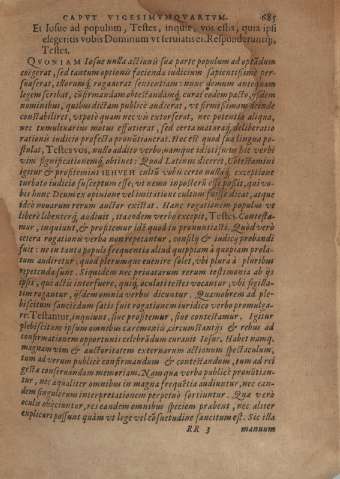 CAPVT VIGESIMVMQVARTVM. 685
Et Iosue ad populum, Testes, inquit, vos estis, quia ipsi
elegeritis vobis Dominum vt seruiatis ei. Responderuntq́;,
Testes.
QVONIAM Iosue nulla actionis sua parte populum ad optādum
coegerat, sed tantum optionis faciendæ iudicium sapientissimè per-
suaserat, illorumq́; rogauerat sententiam: nunc demum antequam
legem scribat, cōfirmandam obtestandamq́; curat eodem pacto, ijsdem
nominibus, quibus dictam publicè audierat, vt firmissimam deinde
constabiliret, vtpote quam nec vis extorserat, nec potentia aliqua,
nec tumultuarius motus effutierat, sed certa maturaq́; deliberatio
rationis iudicio profecta pronūtiancrat. Hoc est quod sua lingua po-
stulat, Testes vos, nullo addito verbo, namque idiotismo hic verbi
vim significationemq́; obtinet: Quod Latinus diceret, Cōtestamini
igitur & profitemini IEHVEH cultū vobis certo nullaq́; exceptione
turbato iudicio susceptum esse, vt nemo in posterū esse possit, qui vo-
bis hunc Deum ex opinione vel imitatione cultum fuisse dicat, atque
ideò nouarum rerum auctor existat. Hanc rogationem populus vt
liberè libenterq́; audiuit, ita eodem verbo excepit, Testes. Contesta-
mur, inquiunt, & profitemur idē quod tu pronuntiasti. Quod verò
cetera rogationis verba non repetantur, consilij & iudicij probandi
fuit: ne in tanta populi frequentia aliud quippiam à quopiam proba-
tum audiretur, quod plerumque euenire solet, vbi plura à pluribus
repetenda sunt. Siquidem nec priuatarum rerum testimonia ab ijs
ipsis, qui actis interfuere, quiq́; oculati testes vocantur, vbi sigilla-
tim rogantur, ijsdem omnia verbis dicuntur. Quamobrem ad ple-
biscitum sanciēdum satis fuit rogationem iuridico verbo promulga-
re. Testantur, inquiunt, siue profitemur, siue contestamur. Igitur
plebiscitum ipsum omnibus cæremonijs, circumstantijs & rebus ad
confirmationem opportunis celebrādum curauit Iosue. Habet namq́;
magnam vim & auctoritatem externarum actionum spectaculum,
tum ad verum publicè confirmandum & contestandum, tum ad rei
gestæ conseruandam memoriam. Nam qua verba publicè pronūtian-
tur, nec æqualiter omnibus in magna frequētia audiuntur, nec ean-
dem singulorum interpretationem perpetuò sortiuntur. Qua verò
oculis obijciuntur, res eandem omnibus speciem præbent, nec aliter
explicari possunt quàm vt lege vel cōsuetudine sancitum est. Sic illa
RR 3 manuum